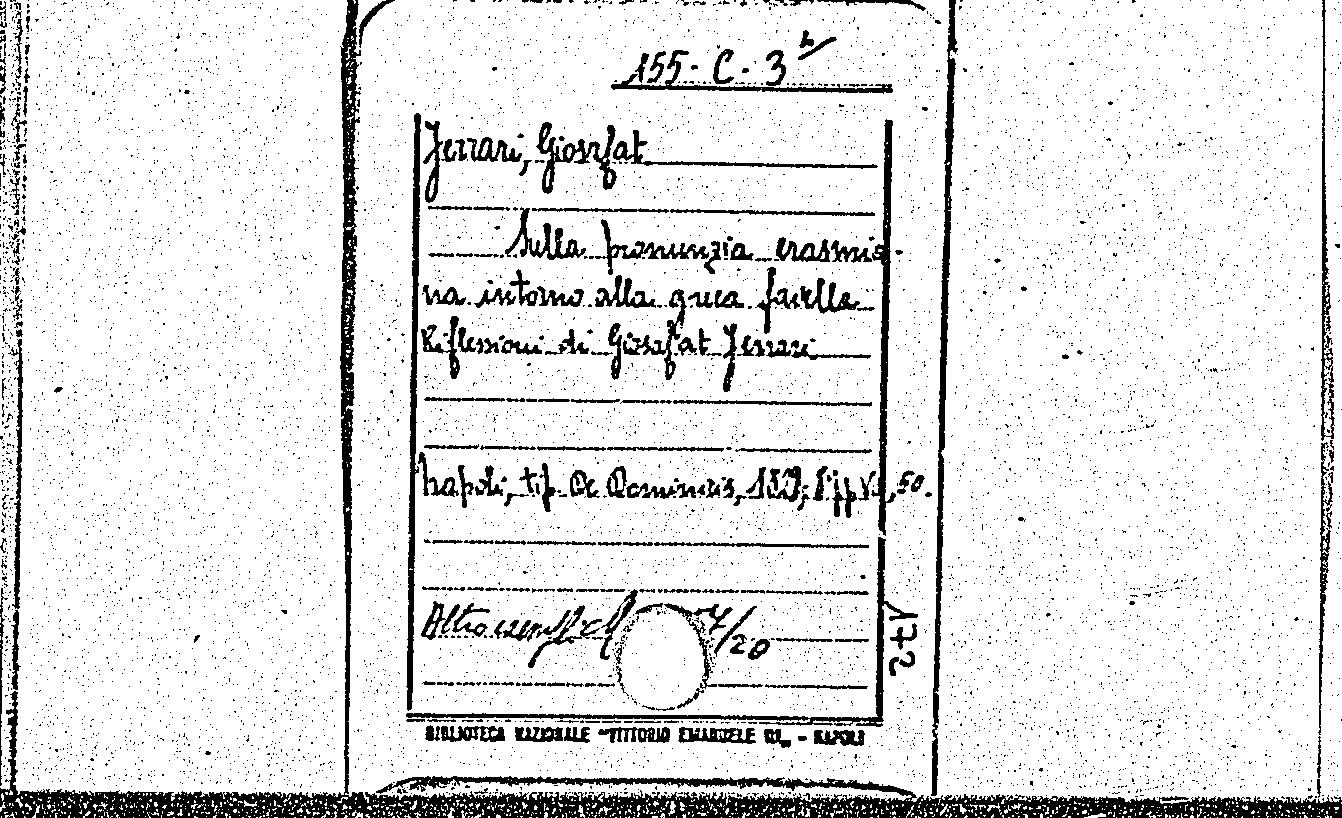 155 - C - 3 4/
Ferrari, Giosafat
Sulla pronunzia erasmia-
na intorno alla greca favella
Riflessioni di Giosafat Ferrari
Napoli, tip. De Dominicis, 50.
Altro 7/20
172
BIBLIOTECA NAZIONALE "VITTORIO EMANUELE III„ - NAPOLI